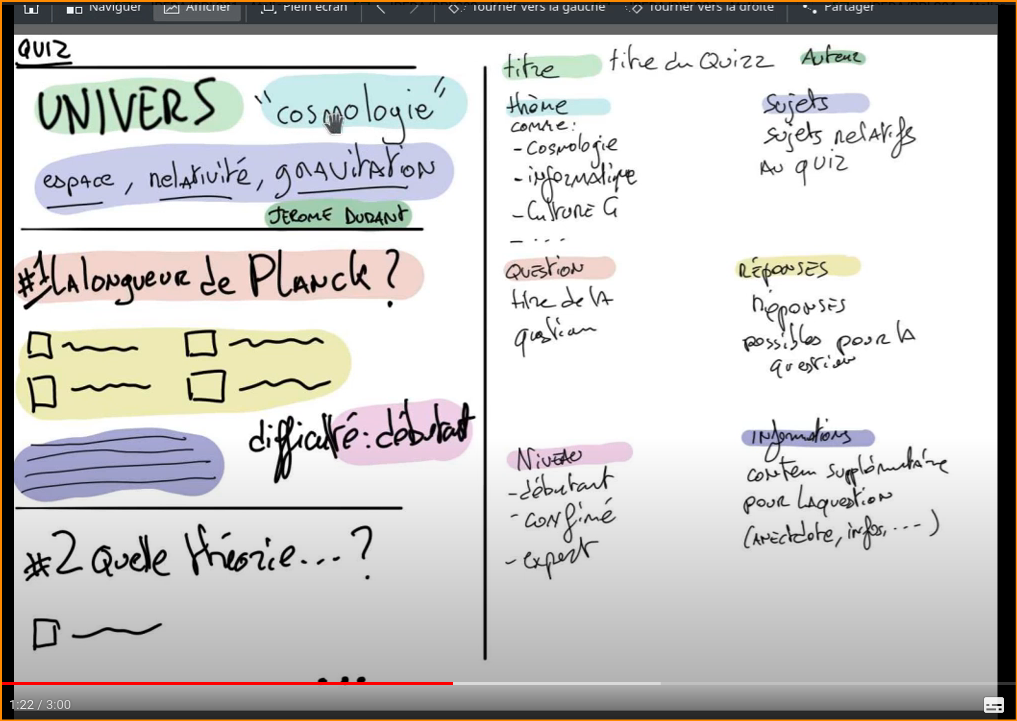 Naviguer
Afficher
Plein écran
Tourner vers la gauche
Tourner vers la droite
Partager
QUIZ
UNIVERS "cosmologie"
espace, relativité, gravitation
JEROME DURANT
#1 La longueur de Planck ?
difficulté : débutant
#2 Quelle théorie...?
...
titre
titre du Quizz
Auteur
thème
comme :
- Cosmologie
- informatique
- Culture G
- ...
Sujets
sujets relatifs
au quiz
QUESTION
titre de la
question
RÉPONSES
Réponses
possibles pour la
question
Niveau
- débutant
- confirmé
- expert
Informations
contenu supplémentaire
pour la question
(anecdote, infos, ...)
1:22 / 3:00